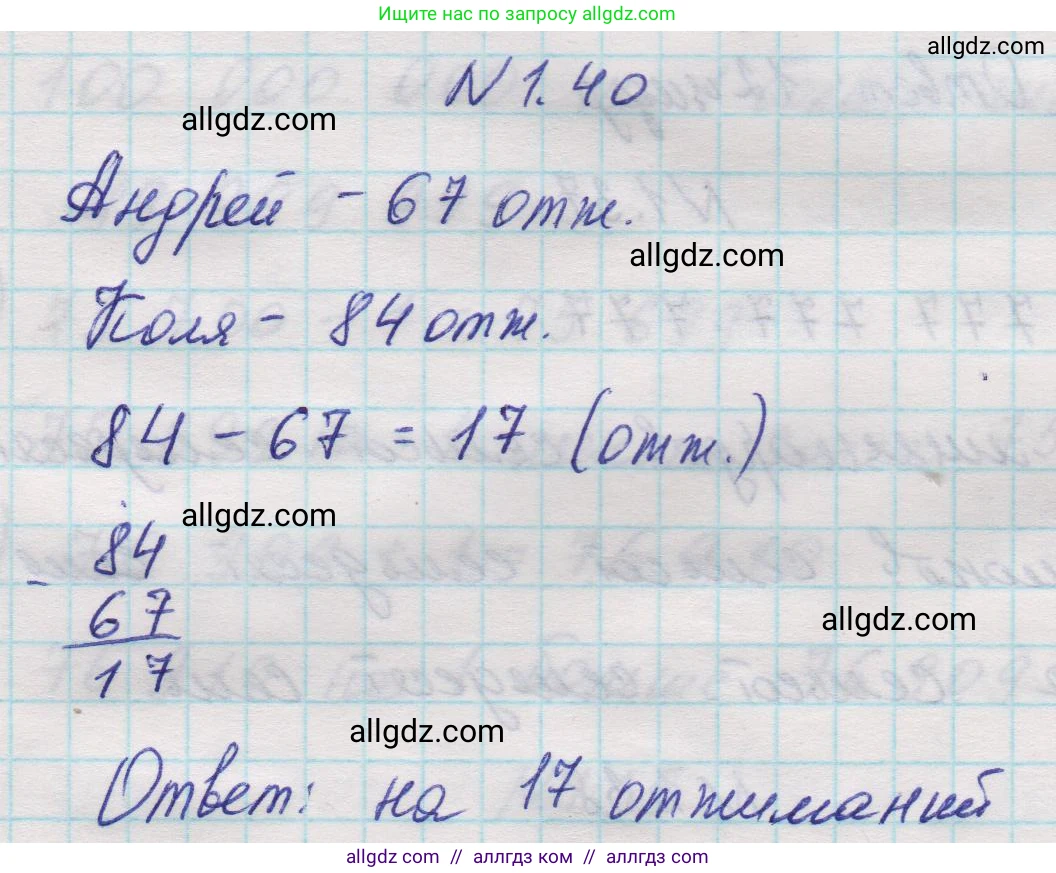 Ищите нас по запросу allgdz.com
allgdz.com
N 1.40
allgdz.com
Андрей - 67 отж.
allgdz.com
Коля - 84 отж.
84 - 67 = 17 (отж.)
allgdz.com
84
-
67
allgdz.com
17
allgdz.com
Ответ: на 17 отжиманий
allgdz.com // аллгдз ком // аллгдз.com